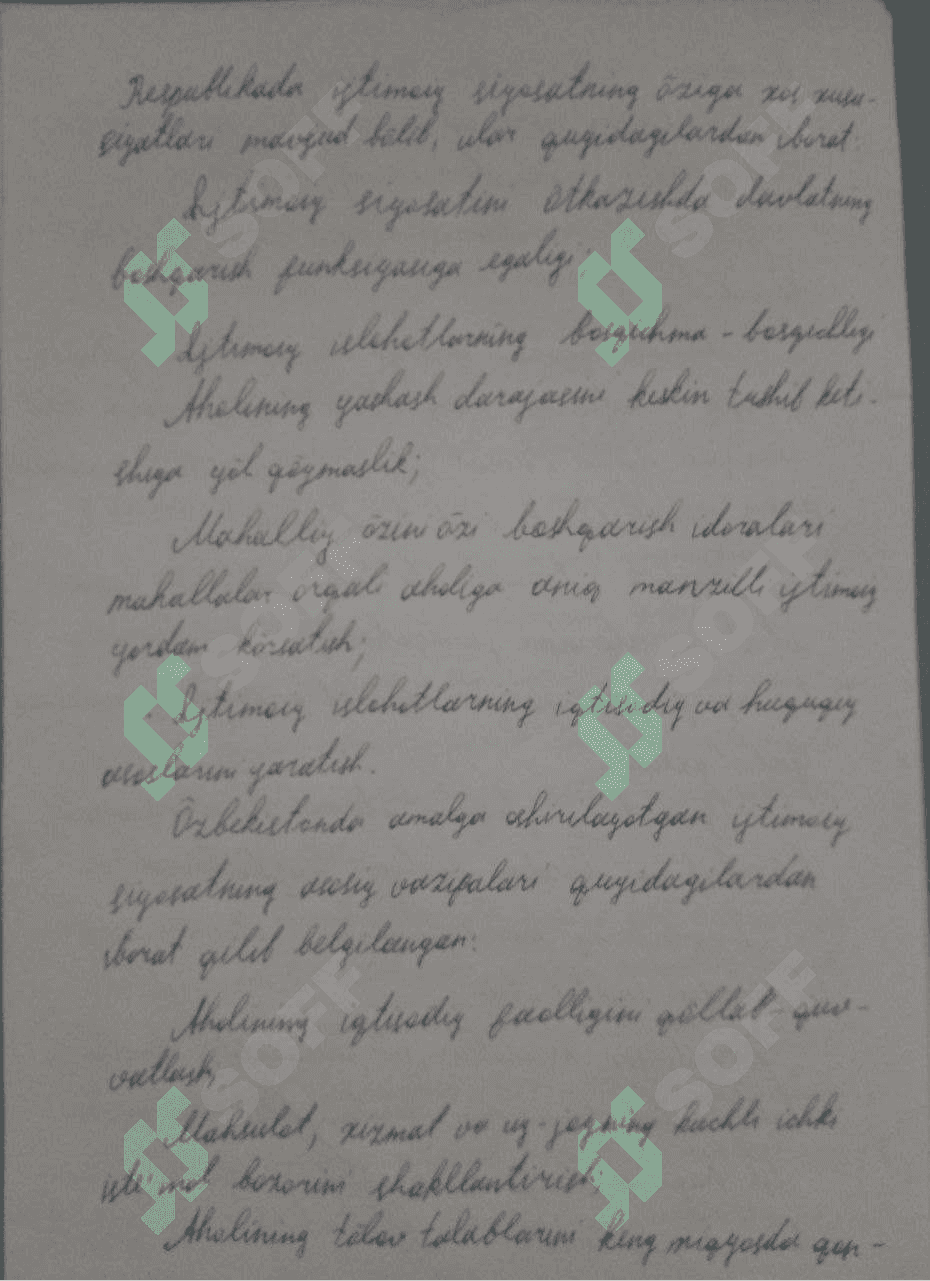 Respublikada ijtimoiy siyosatning õziga xos xusu-
siyatlari mavjud bõlib, ular quyidagilardan iborat:
Ijtimoiy siyosatini õtkazishda davlatning
boshqarish funksiyasiga egaligi;
Ijtimoiy islohotlarning bosqichma-bosqichligi
Aholining yashash darajasini keskin tushib keti-
shiga yõl qõymaslik;
Mahalliy õzini õzi boshqarish idoralari
mahallalar orqali aholiga aniq manzilli ijtimoiy
yordam kõrsatish;
Ijtimoiy islohotlarning iqtisodiy va huquqiy
asoslarini yaratish.
Õzbekistonda amalga oshirilayotgan ijtimoiy
siyosatning asosiy vazifalari quyidagilardan
iborat qilib belgilangan:
Aholining iqtisodiy faolligini qõllab-quv-
vatlash;
Mahsulot, xizmat va uy-joyning kuchli ichki
iste'mol bozorini shakllantirish;
Aholining tõlov talablarini keng miqyosda qon-
SOFF
SOFF
SOFF
SOFF
SOFF
SOFF